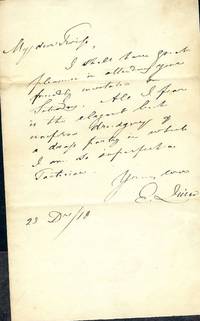 My dear Twiss,
I shall have great
pleasure in attending your
friendly invitation on
Saturday. All I fear
is the elegant but
drudgery of
a day's party in which
I am so imperfect a
Tactician.
Yours ever
E.
23 Dec/18